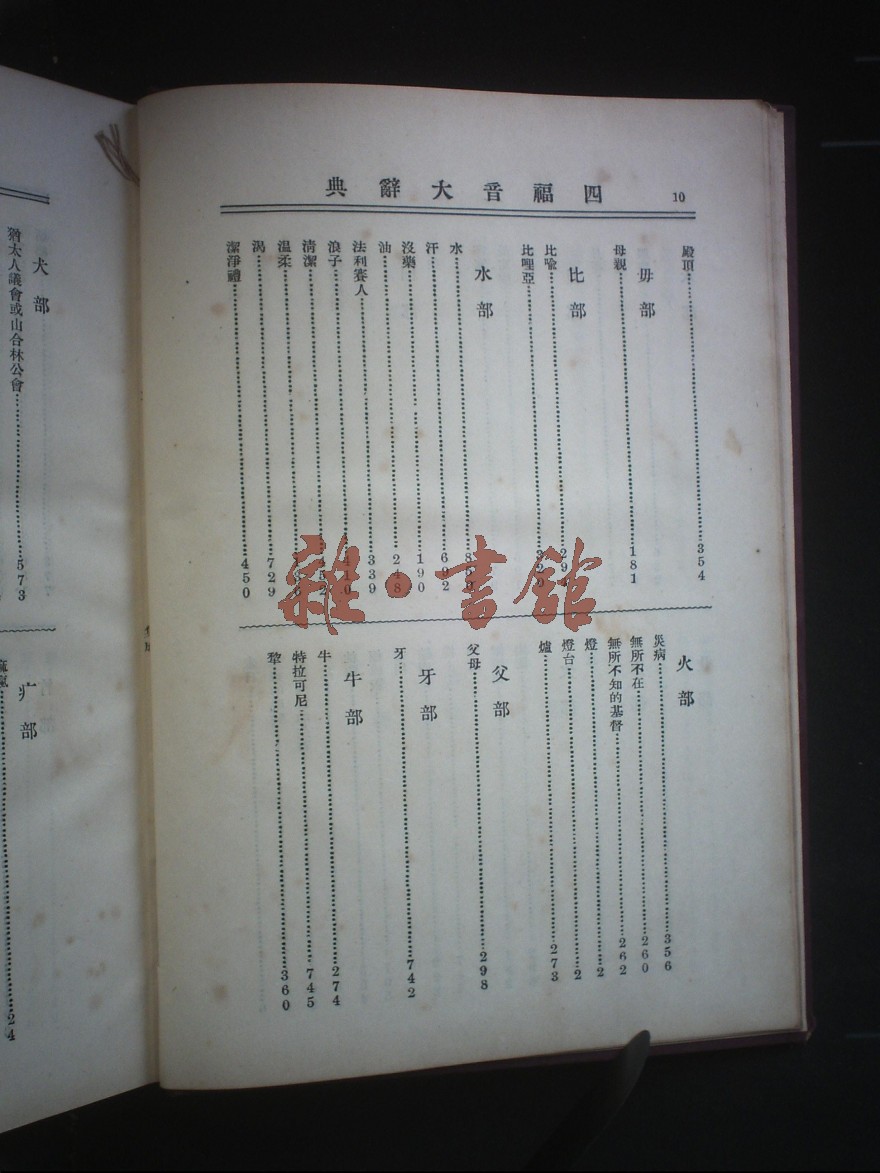 四福音大辭典
10
殿頂 354
毋部
母親 181
比部
比喻
比哩亞
水部
水
汗 692
沒藥 190
油 248
法利賽人 339
浪子
清潔
温柔
渴 729
潔淨禮 450
火部
災病 356
無所不在 260
無所不知的基督 262
燈 2
燈台 2
爐 273
父部
父母 298
牙部
牙 742
牛部
牛 274
特拉可尼 745
犂 360
犬部
猶太人議會或山合林公會 573
疒部
24
雜·書館